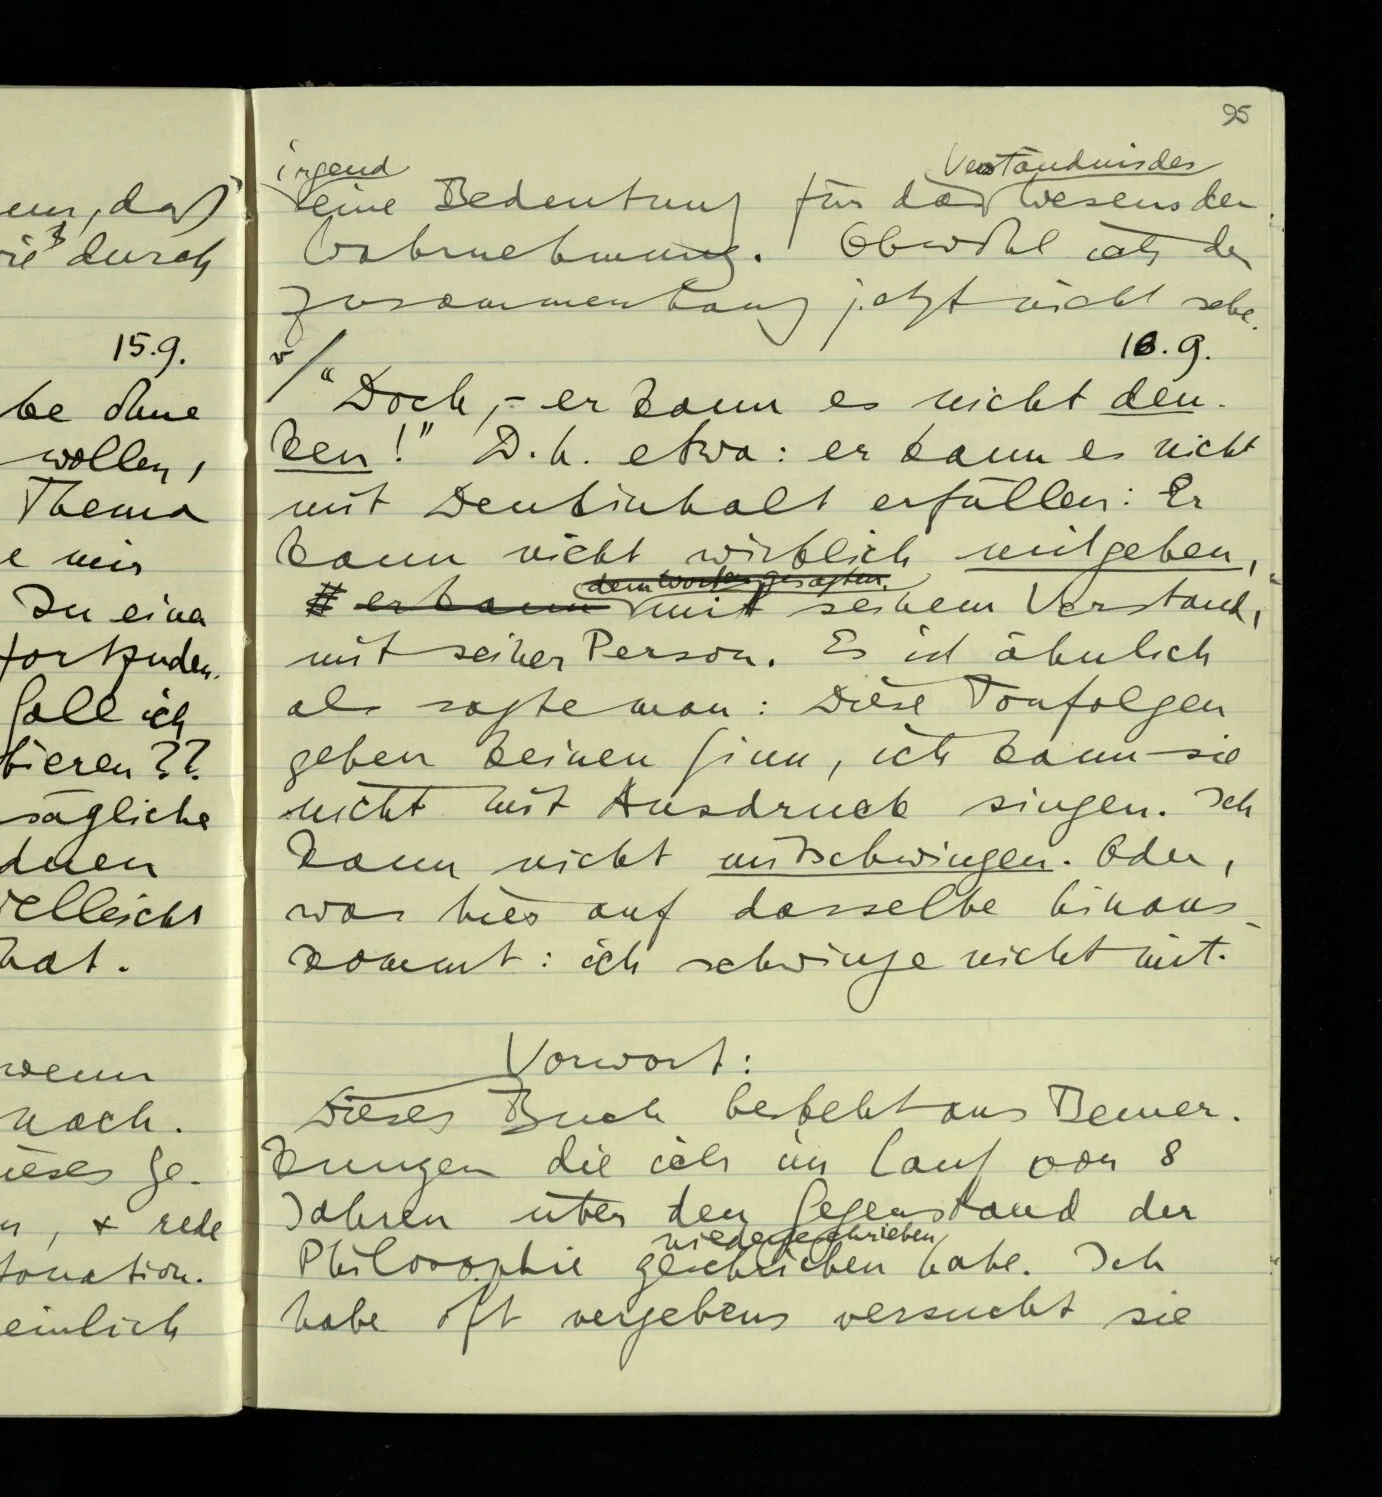 95
eur, daß
wie durch
15.9.
be ohne
wollen,
Thema
e mir
In einer
fortzuden.
Soll ich
bieren??
sägliche
dnen
vielleicht
hat.
wenn
nach.
ieses Ge-
n, & rede
tonation.
einlich
irgend Verständnis des
eine Bedeutung für das Wesens der
Wahrnehmung. Obwohl ich den
Zusammenhang jetzt nicht sehe.
16.9.
v / "Doch, – er kann es nicht den-
ken!" D.h. etwa: er kann es nicht
mit Denkinhalt erfüllen: Er
kann nicht wirklich mitgehen,
dem Worten gesagten
er kann mit seinem Verstand,
mit seiner Person. Es ist ähnlich
als sagte man: Diese Tonfolgen
geben keinen Sinn, ich kann sie
nicht mit Ausdruck singen. Ich
kann nicht mitschwingen. Oder,
was hier auf dasselbe hinaus-
kommt: ich schwinge nicht mit.
Vorwort:
Dieses Buch besteht aus Bemer-
kungen die ich im Lauf von 8
Jahren über den Gegenstand der
niedergeschrieben
Philosophie geschrieben habe. Ich
habe oft vergebens versucht sie